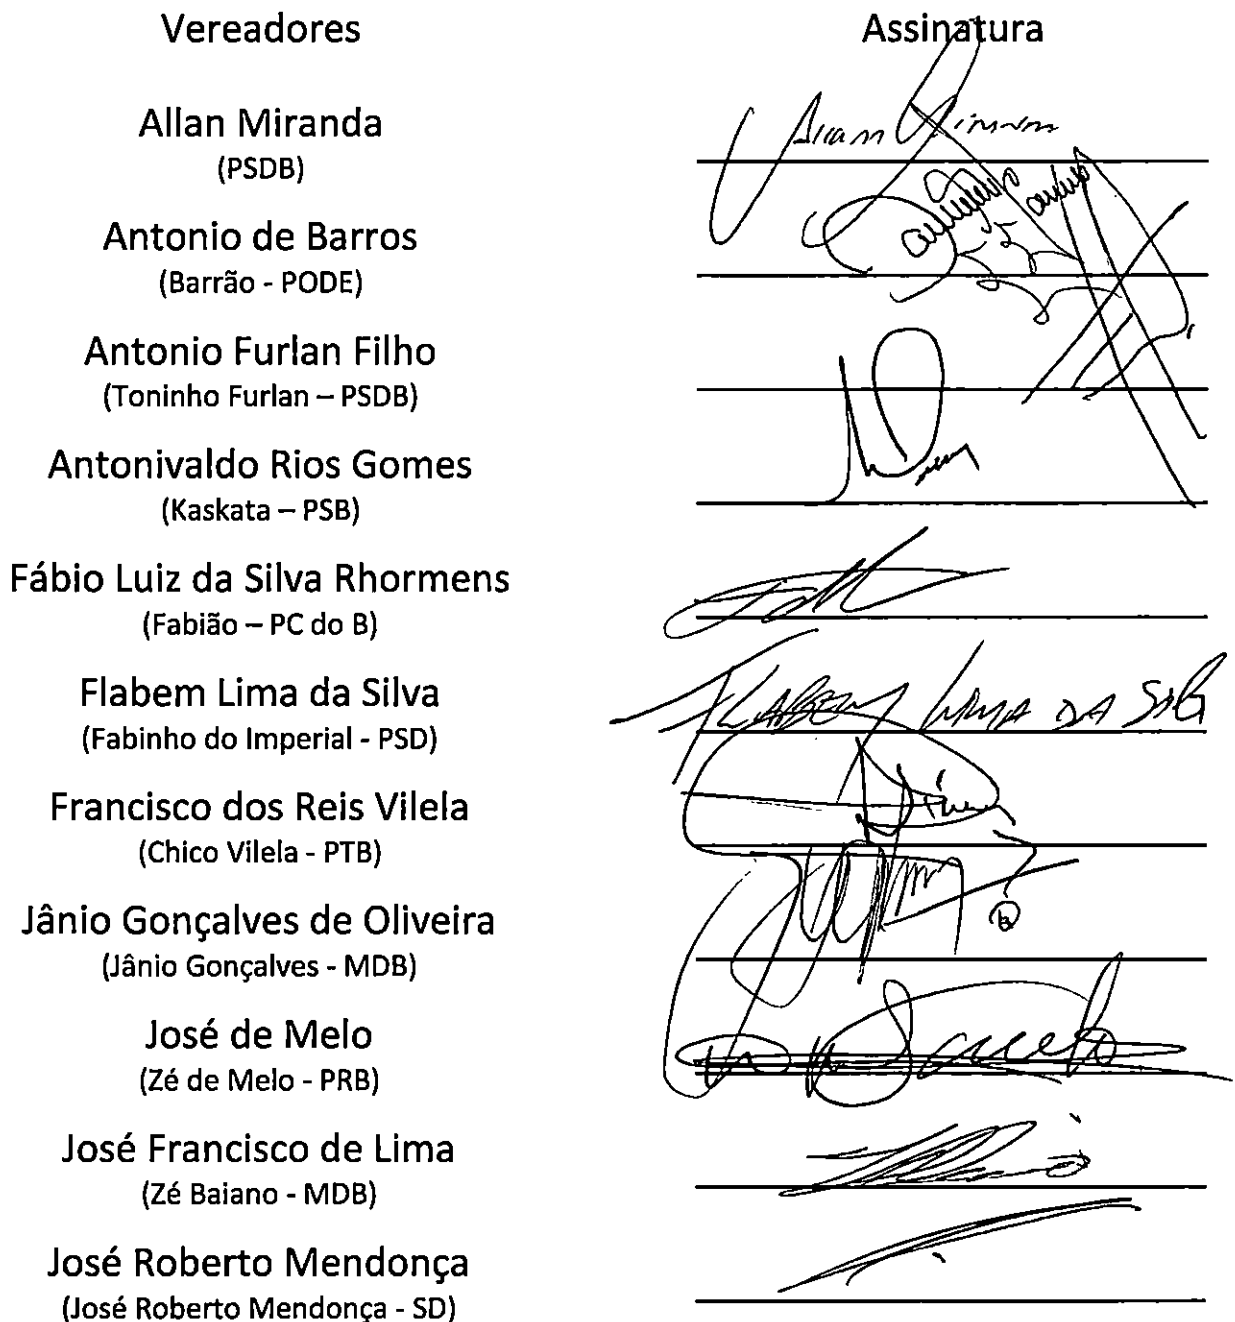 Vereadores Assinatura
Allan Miranda
(PSDB)
Antonio de Barros
(Barrão - PODE)
Antonio Furlan Filho
(Toninho Furlan – PSDB)
Antonivaldo Rios Gomes
(Kaskata – PSB)
Fábio Luiz da Silva Rhormens
(Fabião – PC do B)
Flabem Lima da Silva
FLABEM LIMA DA SILVA
(Fabinho do Imperial - PSD)
Francisco dos Reis Vilela
(Chico Vilela - PTB)
Jânio Gonçalves de Oliveira
(Jânio Gonçalves - MDB)
José de Melo
(Zé de Melo - PRB)
José Francisco de Lima
(Zé Baiano - MDB)
José Roberto Mendonça
(José Roberto Mendonça - SD)